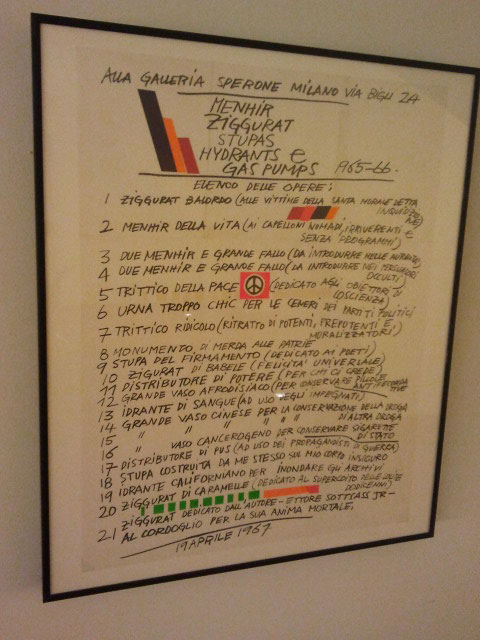 ALLA GALLERIA SPERONE MILANO VIA BIGLI 24
MENHIR
ZIGGURAT
STUPAS
HYDRANTS e
GAS PUMPS 1965-66.
ELENCO DELLE OPERE:
1 ZIGGURAT BALORDO (ALLE VITTIME DELLA SANTA MORALE DETTA
2 MENHIR DELLA VITA (AI CAPELLONI NOMADI, IRRIVERENTI E
SENZA PROGRAMMI)
3 DUE MENHIR E GRANDE FALLO (DA INTRODURRE NELLE
4 DUE MENHIR E GRANDE FALLO (DA INTRODURRE NEI PERSUASORI
OCCULTI)
5 TRITTICO DELLA PACE (DEDICATO AGLI OBIETTORI DI
COSCIENZA)
6 URNA TROPPO CHIC PER LE CENERI DEI PARTITI POLITICI
7 TRITTICO RIDICOLO (RITRATTO DI POTENTI, PREPOTENTI E
MORALIZZATORI)
8 MONUMENTO DI MERDA ALLE PATRIE
9 STUPA DEL FIRMAMENTO (DEDICATO AI POETI)
10 ZIGURAT DI BABELE (FELICITA' UNIVERSALE)
11 DISTRIBUTORE DI POTERE (PER CHI CI CREDE)
12 GRANDE VASO AFRODISIACO (PER CONSERVARE PILLOLE
ANTIFECONDATIVE
13 IDRANTE DI SANGUE (AD USO DEGLI IMPEGNATI)
14 GRANDE VASO CINESE PER LA CONSERVAZIONE DELLA DROGA
15 " " " " " " DI ALTRA DROGA
16 " VASO CANCEROGENO PER CONSERVARE SIGARETTE
DI STATO
17 DISTRIBUTORE DI PUS (AD USO DEI PROPAGANDISTI DI GUERRA)
18 STUPA COSTRUITA DA ME STESSO SUL MIO CORPO INSICURO
19 IDRANTE CALIFORNIANO PER INONDARE GLI ARCHIVI
20 ZIGGURAT DI CARAMELLE (DEDICATO AL SUPERCOITO DELLE
DODICENNI)
21 ZIGGURAT DEDICATO DALL'AUTORE - ETTORE SOTTSASS JR -
AL CORDOGLIO PER LA SUA ANIMA MORTALE.
19 APRILE 1967